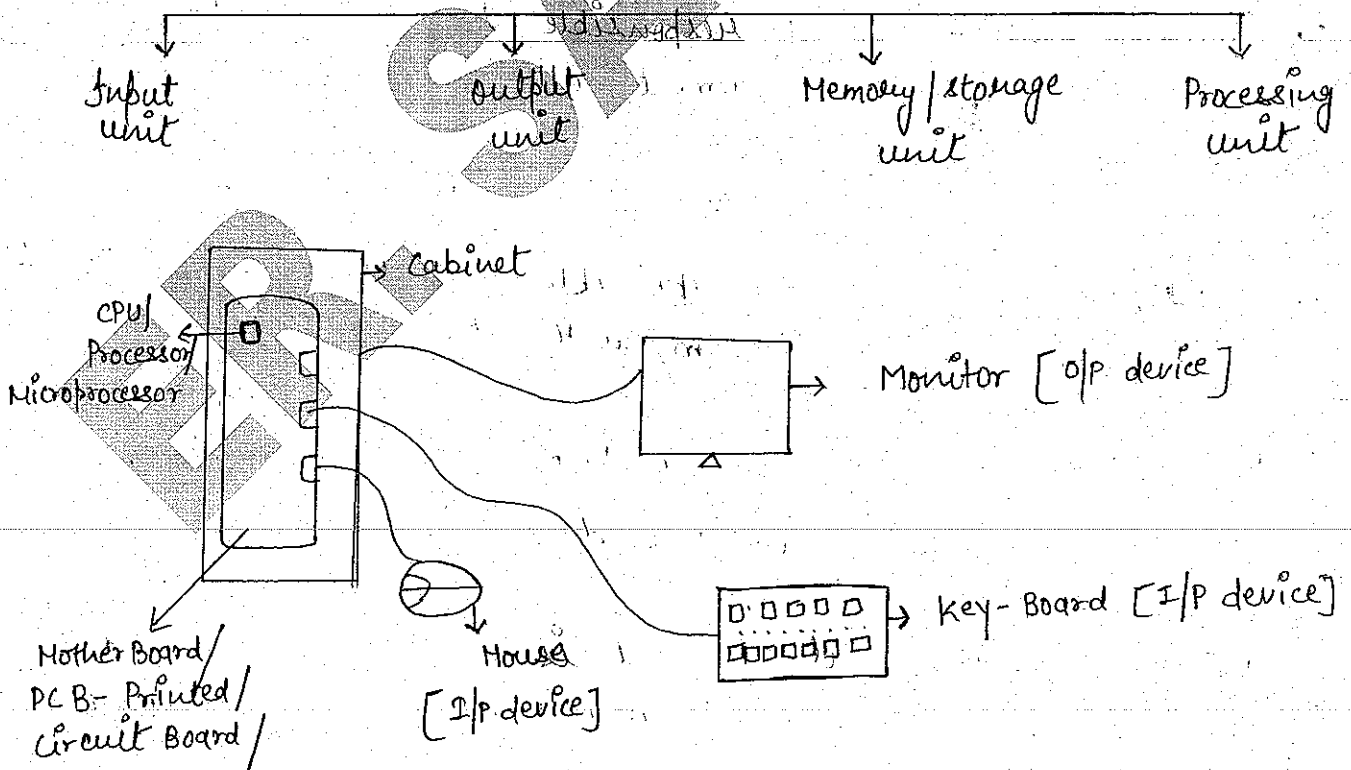 Input
unit
Output
unit
Memory/storage
unit
Processing
unit
Cabinet
CPU/
Processor/
Microprocessor
Monitor [O/P device]
Key-Board [I/P device]
Mouse
[I/P device]
Mother Board/
PCB- Printed/
Circuit Board/